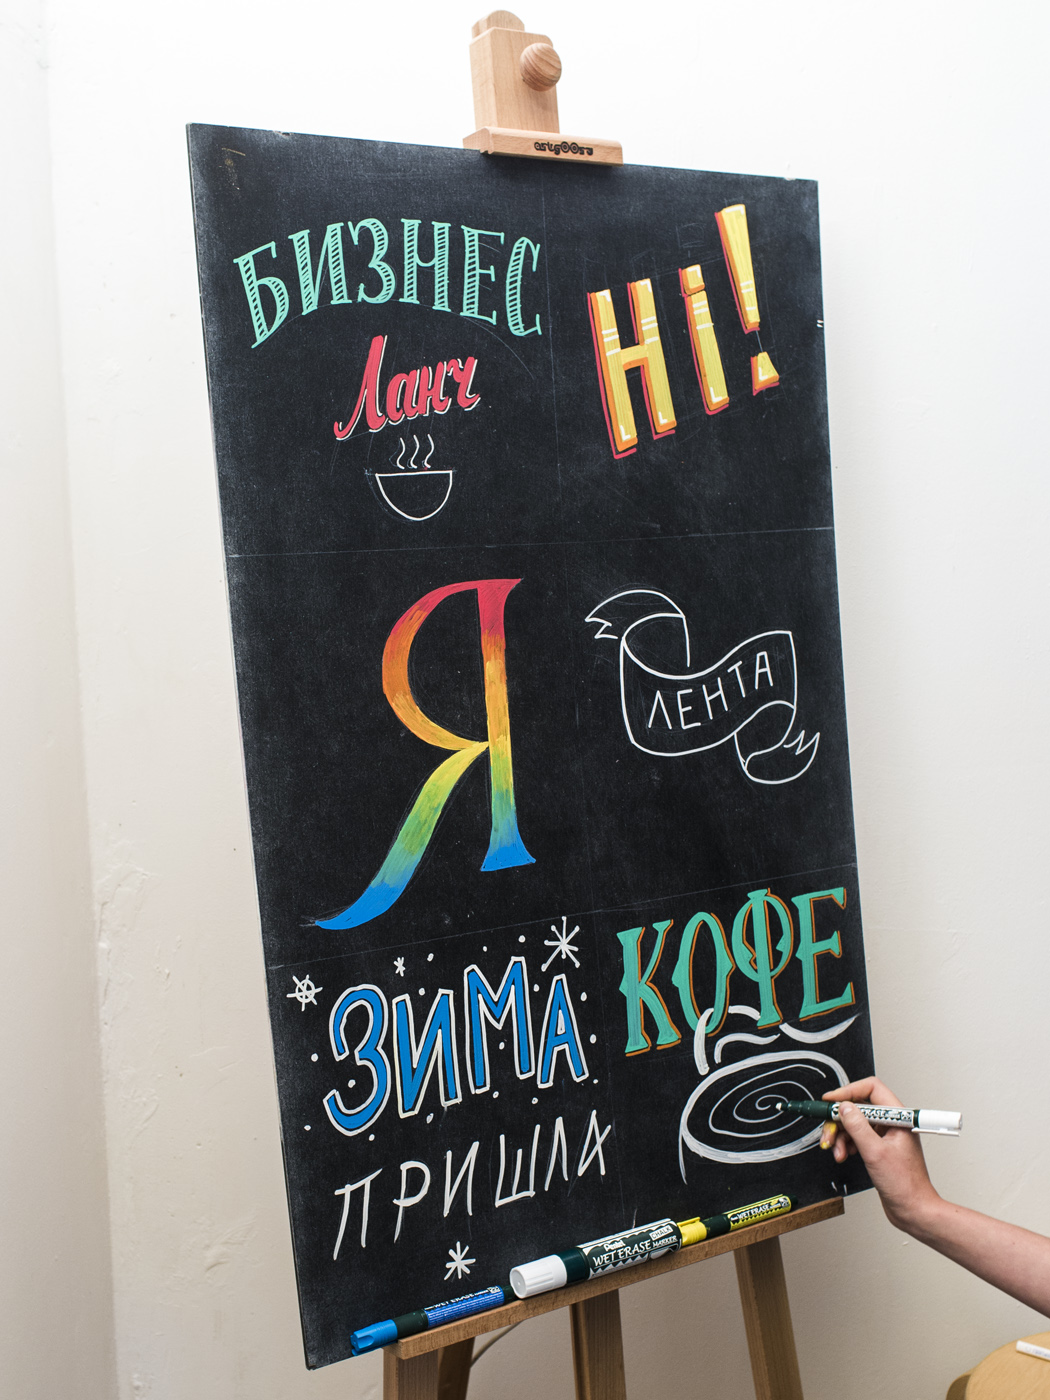 БИЗНЕС
Ланч
Hi!
Я
ЛЕНТА
ЗИМА
ПРИШЛА
КОФЕ
Pentel
WET ERASE MARKER
WET ERASE
WET ERASE